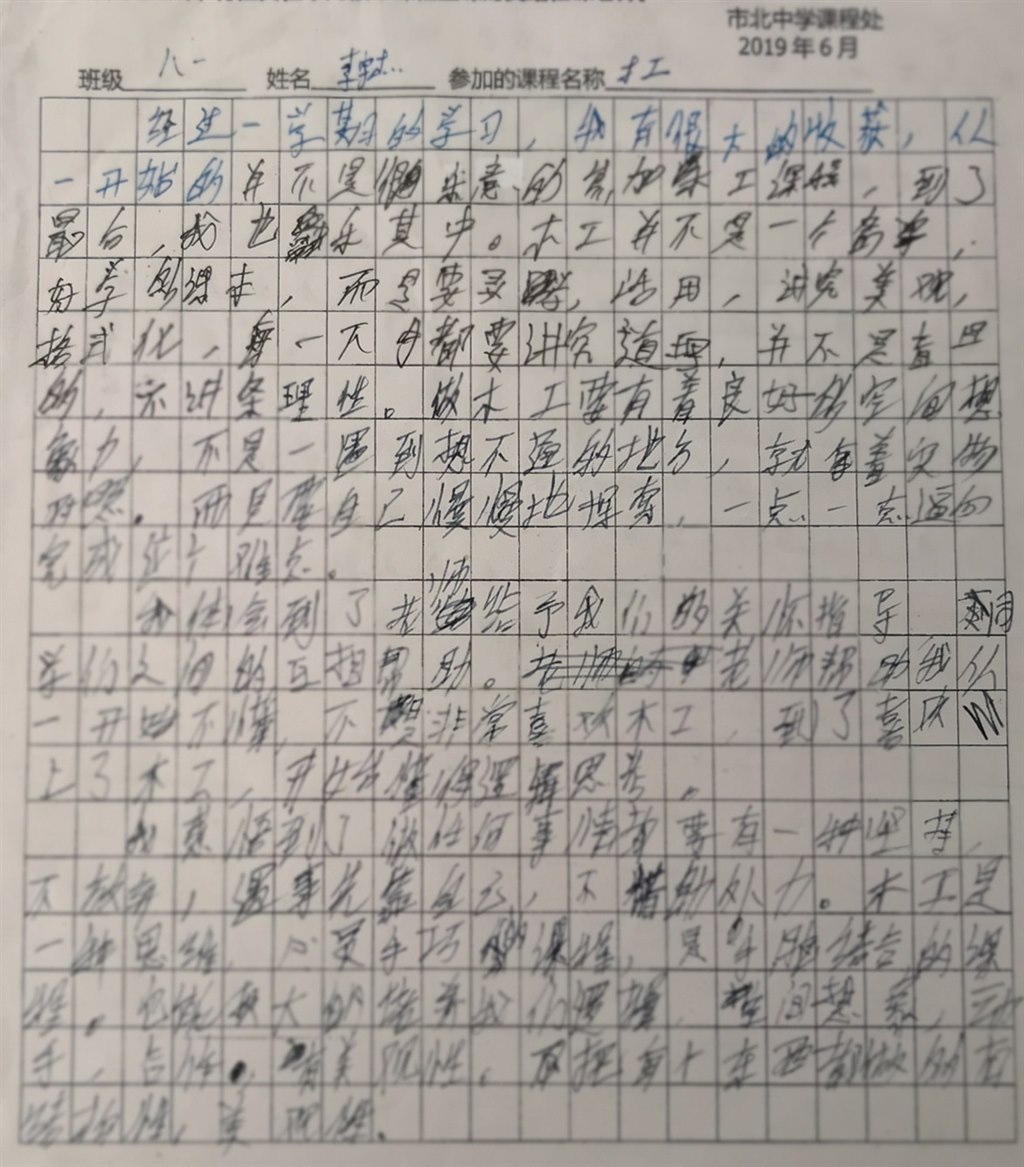 市北中学课程处
2019年6月
班级 八一 姓名 李 参加的课程名称 木工
经过一学期的学习,我有很大的收获,从
一开始的并不是很乐意的参加木工课程,到了
最后,我也乐其中。木工并不是一个简单,
好学的课本,而是要灵活用,讲究美观,
格式化,每一天都要讲究道理,并不是盲目
的,不讲条理性。做木工要有着良好的空间想
象力,不是一遇到想不通的地方,就拿着实物
对照。而是要自己慢慢地探索,一点一点逼向
完成这个难点。
我体会到了老师给予我们的关怀指导 同
学们之间的互相帮助。老师帮助我从
一开始不懂,不是非常喜欢木工,到了喜欢
上了木工,开始懂得逻辑思考。
我意悟到了做任何事情都要有一种坚持,
不放弃,遇事先靠自己,不借助外力。木工是
一种思维,心灵手巧的课程,是手脑结合的课
程。它能极大的培养我们逻辑,空间想象,动
手,合作,美观性。要把每个东西都做的有
结构性,美观性。